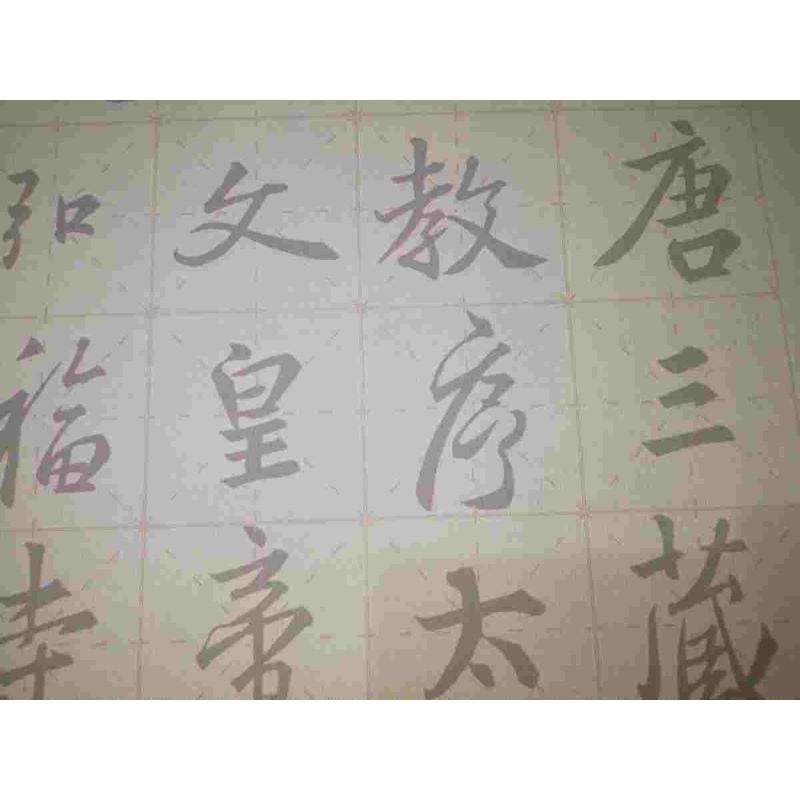 唐三藏
教序太
文皇帝
弘福寺